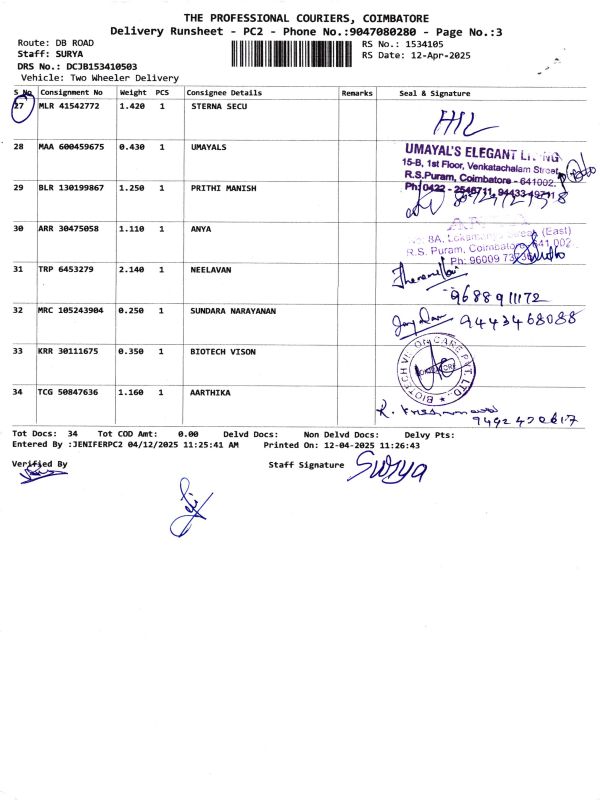 THE PROFESSIONAL COURIERS, COIMBATORE
Delivery Runsheet - PC2 - Phone No.:9047080280 - Page No.:3
Route: DB ROAD
RS No.: 1534105
Staff: SURYA
RS Date: 12-Apr-2025
DRS No.: DCJB153410503
Vehicle: Two Wheeler Delivery
S No Consignment No Weight PCS Consignee Details Remarks Seal & Signature
27 MLR 41542772 1.420 1 STERNA SECU
28 MAA 600459675 0.430 1 UMAYALS
UMAYAL'S ELEGANT
15-B, 1st Floor, Venkatachalam Street,
R.S.Puram, Coimbatore - 641002.
Ph: 0422 - 2546711, 94433 49711
29 BLR 130199867 1.250 1 PRITHI MANISH
30 ARR 30475058 1.110 1 ANYA
8A, (East)
R.S. Puram, Coimbatore 641 002.
Ph: 96009
31 TRP 6453279 2.140 1 NEELAVAN
9688911172
32 MRC 105243904 0.250 1 SUNDARA NARAYANAN
9443468088
33 KRR 30111675 0.350 1 BIOTECH VISON
BIOTECH VISION CARE PVT. LTD.
34 TCG 50847636 1.160 1 AARTHIKA
Tot Docs: 34 Tot COD Amt: 0.00 Delvd Docs: Non Delvd Docs: Delvy Pts:
Entered By :JENIFERPC2 04/12/2025 11:25:41 AM Printed On: 12-04-2025 11:26:43
Verified By Staff Signature Surya